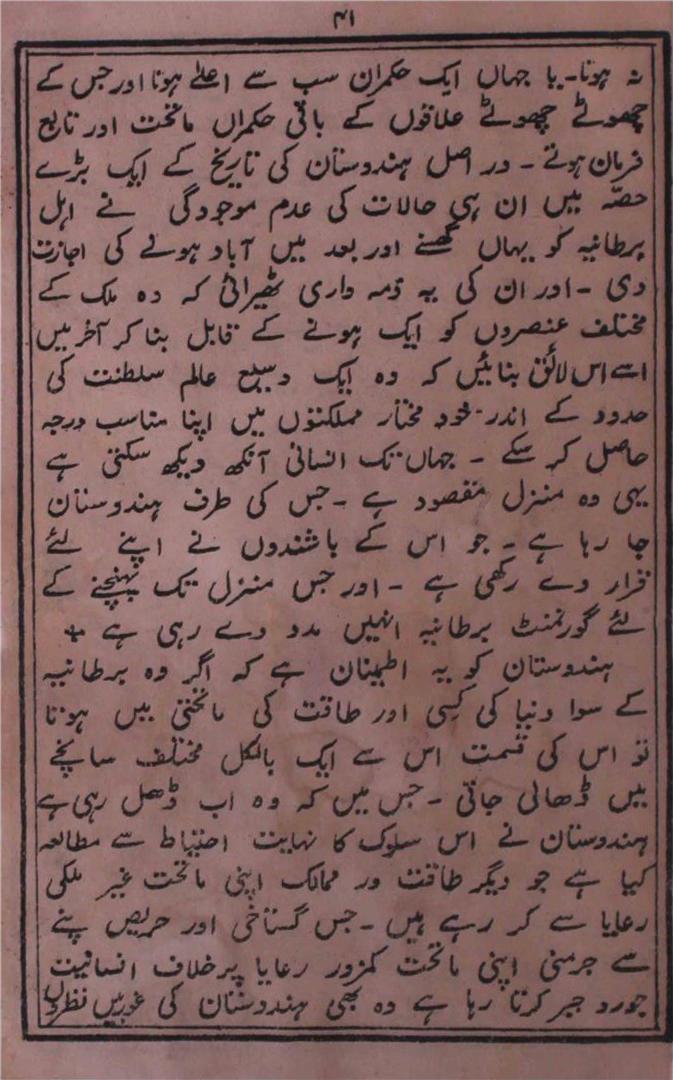 ۴۱
نہ ہوتا۔ یا جہاں ایک حکمران سب سے اعلےٰ ہوتا اور جس کے
چھوٹے چھوٹے علاقوں کے باقی حکمراں ماتحت اور تابع
فرمان ہوتے ۔ در اصل ہندوستان کی تاریخ کے ایک بڑے
حصّہ میں ان ہی حالات کی عدم موجودگی نے اہل
برطانیہ کو یہاں گھسنے اور بعد میں آباد ہونے کی اجازت
دی ۔ اور ان کی یہ ذمہ داری ٹھیرائی کہ وہ ملک کے
مختلف عنصروں کو ایک ہونے کے قابل بنا کر آخر میں
اسے اس لائق بنائیں کہ وہ ایک وسیع عالم سلطنت کی
حدود کے اندر خود مختار مملکتوں میں اپنا مناسب درجہ
حاصل کر سکے ۔ جہاں تک انسانی آنکھ دیکھ سکتی ہے
یہی وہ منزل مقصود ہے ۔ جس کی طرف ہندوستان
جا رہا ہے ۔ جو اس کے باشندوں نے اپنے لئے
قرار دے رکھی ہے ۔ اور جس منزل تک پہنچنے کے
لئے گورنمنٹ برطانیہ انہیں مدد دے رہی ہے +
ہندوستان کو یہ اطمینان ہے کہ اگر وہ برطانیہ
کے سوا دنیا کی کسی اور طاقت کی ماتحتی میں ہوتا
تو اس کی قسمت اس سے ایک بالکل مختلف سانچے
میں ڈھالی جاتی ۔ جس میں کہ وہ اب ڈھل رہی ہے
ہندوستان نے اس سلوک کا نہایت احتیاط سے مطالعہ
کیا ہے جو دیگر طاقت ور ممالک اپنی ماتحت غیر ملکی
رعایا سے کر رہے ہیں ۔ جس گستاخی اور حریص پنے
سے جرمنی اپنی ماتحت کمزور رعایا پر خلاف انسانیت
جور و جبر کرتا رہا ہے وہ بھی ہندوستان کی غوربیں نظروں